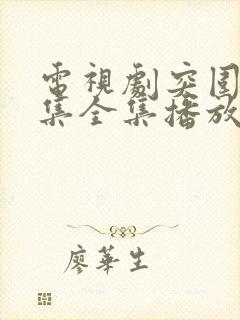 電視劇突围
集全集播放
廖華生